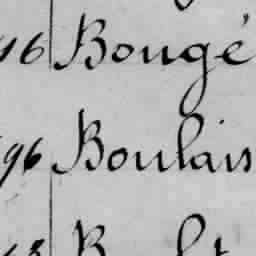 16 Bougé
96 Boulais